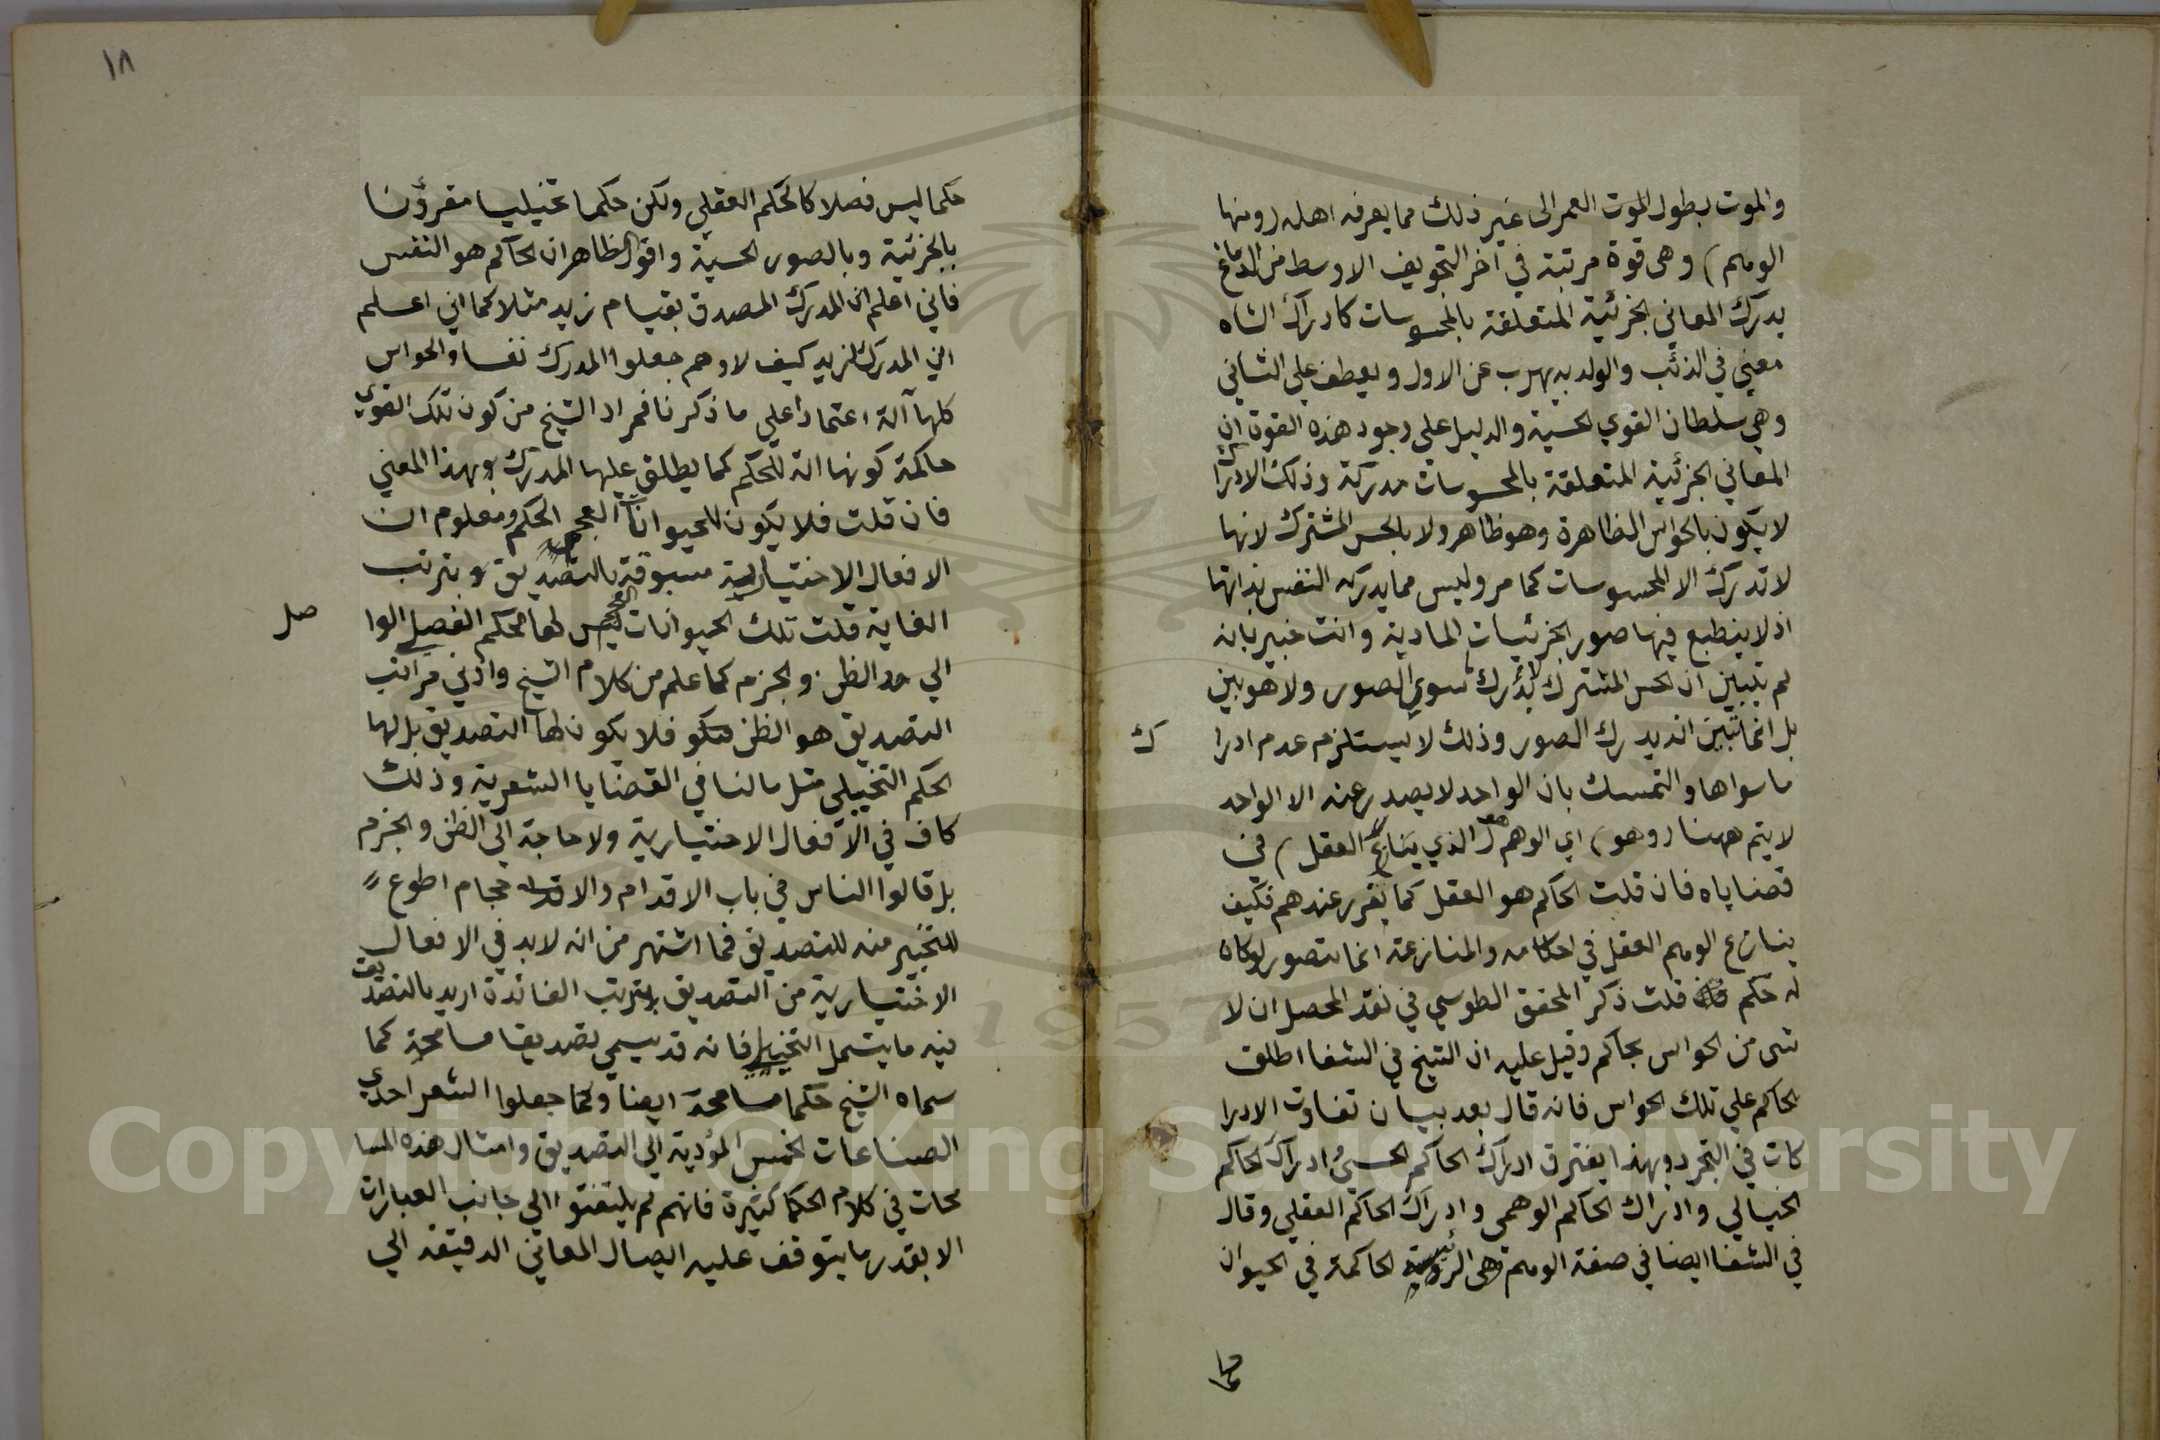 والموت بطول الموت العمر الى غير ذلك مما يعرفه اهله (ومنها
الوهم) وهى قوة مرتبة في آخر التجويف الاوسط من الدماغ
يدرك المعاني الجزئية المتعلقة بالمحسوسات كادراك الشاه
معني في الذئب والولد به يهرب عن الاول ويعطف علي الثاني
وهي سلطان القوي الحسية والدليل علي وجود هذه القوة ان
المعاني الجزئية المتعلقة بالمحسوسات مدركة وذلك الادراك
لا يكون بالحواس الظاهرة وهو ظاهر ولا بالحس المشترك لانها
لا تدرك الا المحسوسات كما مر وليس مما يدركه النفس بذاتها
اذ لا ينطبع فيها صور الجزئيات المادية وانت خبير بانه
لم يتبين ان الحس المشترك لا يدرك سوي الصور ولا هو بين
بل انما تبين انه يدرك الصور وذلك لا يستلزم عدم ادرا
ك
ما سواها والتمسك بان الواحد لا يصدر عنه الا الواحد
لا يتم ههنا (وهو) اي الوهم هو (الذي ينازع العقل) في
قضاياه فان قلت الحاكم هو العقل كما تقرر عندهم فكيف
ينازع الوهم العقل في احكامه والمنازعة انما يتصور لو كان
له حكم قلت ذكر المحقق الطوسي في نقد المحصل ان لا
شي من الحواس بحاكم وقيل عليه ان الشيخ في الشفا اطلق
الحاكم علي تلك الحواس فانه قال بعد بيان تفاوت الادرا
كات في التجرد وبهذا يفترق ادراك الحاكم الحسي وادراك الحاكم
الخيالي وادراك الحاكم الوهمي وادراك الحاكم العقلي وقال
في الشفا ايضا في صفة الوهم وهى الرئيسة الحاكمة في الحيوان
حكما
١٨
حكما ليس فصلا كالحكم العقلي ولكن حكما تخيليا مقرونا
بالجزئية وبالصور الحسية واقول الظاهر ان الحاكم هو النفس
فاني اعلم ان المدرك المصدق بقيام زيد مثلا كما اني اعلم
اني المدرك لزيد كيف لا وهم جعلوا المدرك نفسا والحواس
كلها آلة اعتمادا علي ما ذكرنا فمراد الشيخ من كون تلك القوي
حاكمة كونها الة للحكم كما يطلق عليها المدرك بهذا المعني
فان قلت فلا يكون للحيوانات العجم الحكم ومعلوم ان
الافعال الاختيارية مسبوقة بالتصديق بترتب
الغاية قلت تلك الحيوانات العجم ليس لها حكم الفصل الوا
صل
الي حد الظن والجزم كما علم من كلام الشيخ وادني مراتب
التصديق هو الظن فلا يكون لها التصديق بل لها
الحكم التخييلي مثل ما لنا في القضايا الشعرية وذلك
كاف في الافعال الاختيارية ولا حاجة الي الظن والجزم
بل قالوا الناس في باب الاقدام والاحجام اطوع
للتخيير منه للتصديق فما اشتهر من انه لا بد في الافعال
الاختيارية من التصديق بترتب الفائدة اريد بالتصديق
فيه ما يشمل التخييل فانه قد يسمي تصديقا مسامحة كما
سماه الشيخ حكما مسامحة ايضا وكما جعلوا الشعر احدي
الصناعات الخمس المؤدية الي التصديق وامثال هذه المسا
محات في كلام الحكما كثيرة فانهم لم يلتفتوا الي جانب العبارات
الا بقدر ما يتوقف عليه ايصال المعاني الدقيقة الي
Copyright © King Saud University
1957